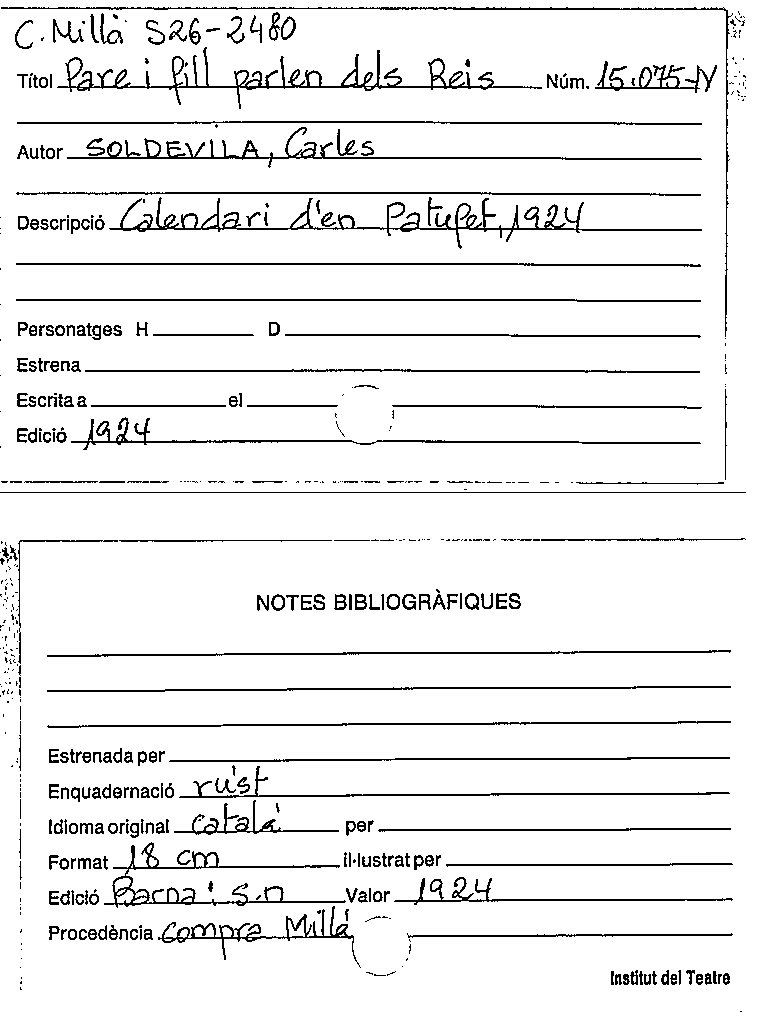 C. Millà S26-2480
Títol Pare i fill parlen dels Reis Núm. 15.075-N
Autor SOLDEVILA, Carles
Descripció Calendari d'en Patufet, 1924
Personatges H D
Estrena
Escrita a el
Edició 1924
NOTES BIBLIOGRÀFIQUES
Estrenada per
Enquadernació rúst
Idioma original català per
Format 18 cm il·lustrat per
Edició Barna: s.n Valor 1924
Procedència compra Millà
Institut del Teatre